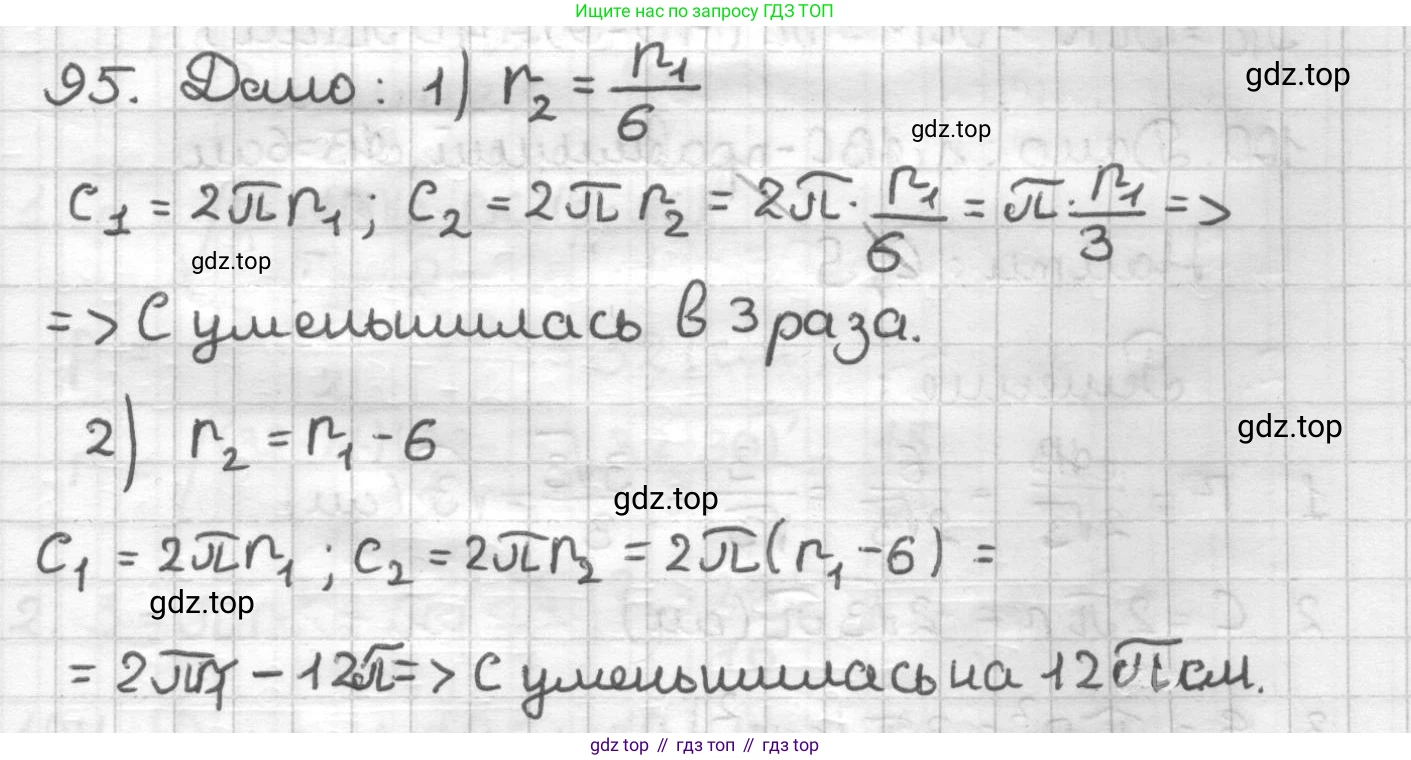 Ищите нас по запросу ГДЗ ТОП
95. Дано: 1) r₂ = r₁/6
gdz.top
gdz.top
C₁ = 2πr₁; C₂ = 2πr₂ = 2π · r₁/6 = π · r₁/3 =>
gdz.top
=> C уменьшилась в 3 раза.
2) r₂ = r₁ - 6
gdz.top
gdz.top
C₁ = 2πr₁; C₂ = 2πr₂ = 2π(r₁ - 6) =
gdz.top
= 2πr₁ - 12π => C уменьшилась на 12π см.
gdz top // гдз топ // гдз top